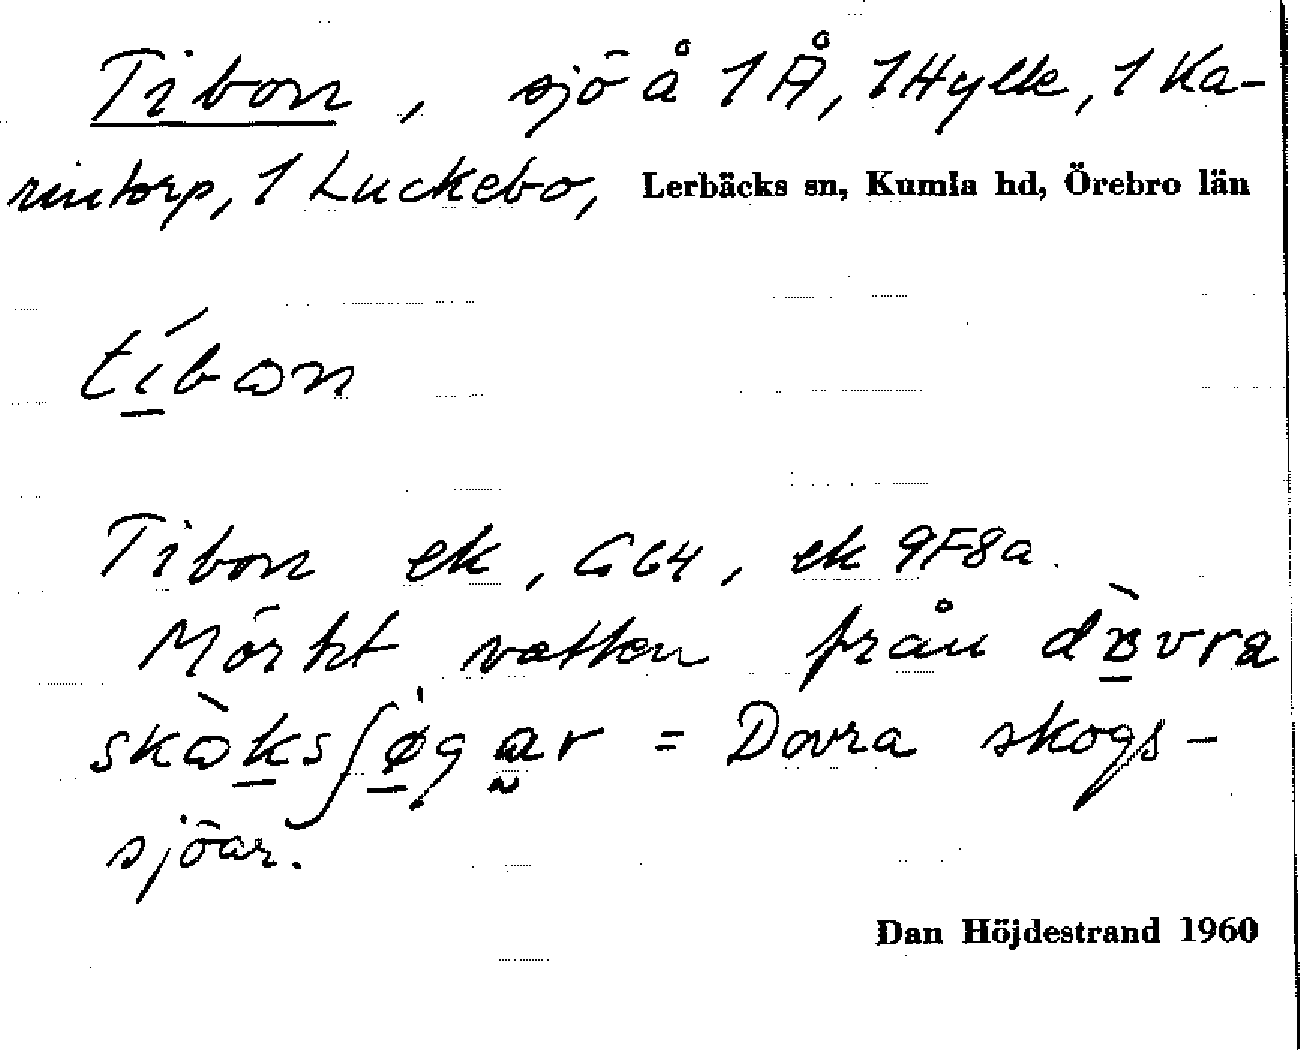 Tibon, sjö å 1 Å, 1 Hylle, 1 Ka-
rintorp, 1 Luckebo, Lerbäcks sn, Kumla hd, Örebro län
tíbɷn
Tibon ek, G64, ek 9F8a.
Mörkt vatten från
= Dovra skogs-
sjöar.
Dan Höjdestrand 1960